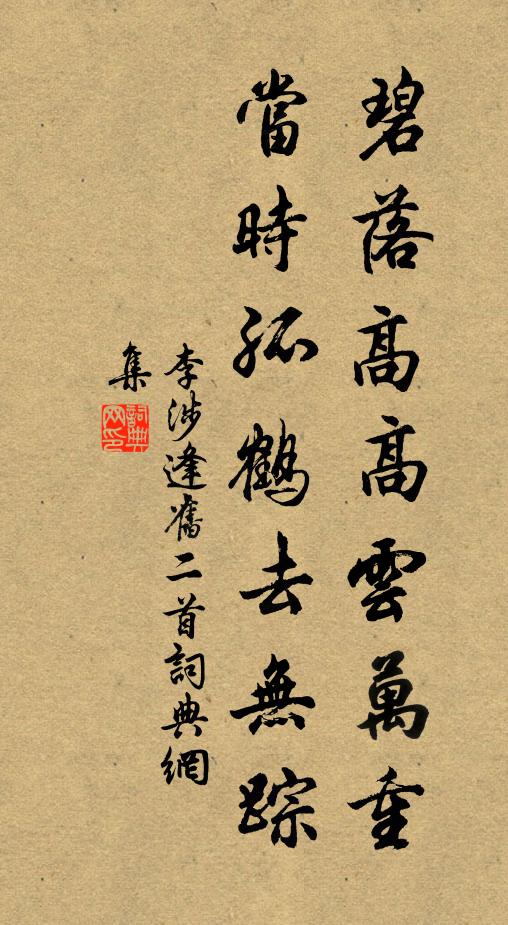 碧落高高雲萬重
當時孤鶴去無踪
李涉逢舊二首詞典網
集
詞典网印